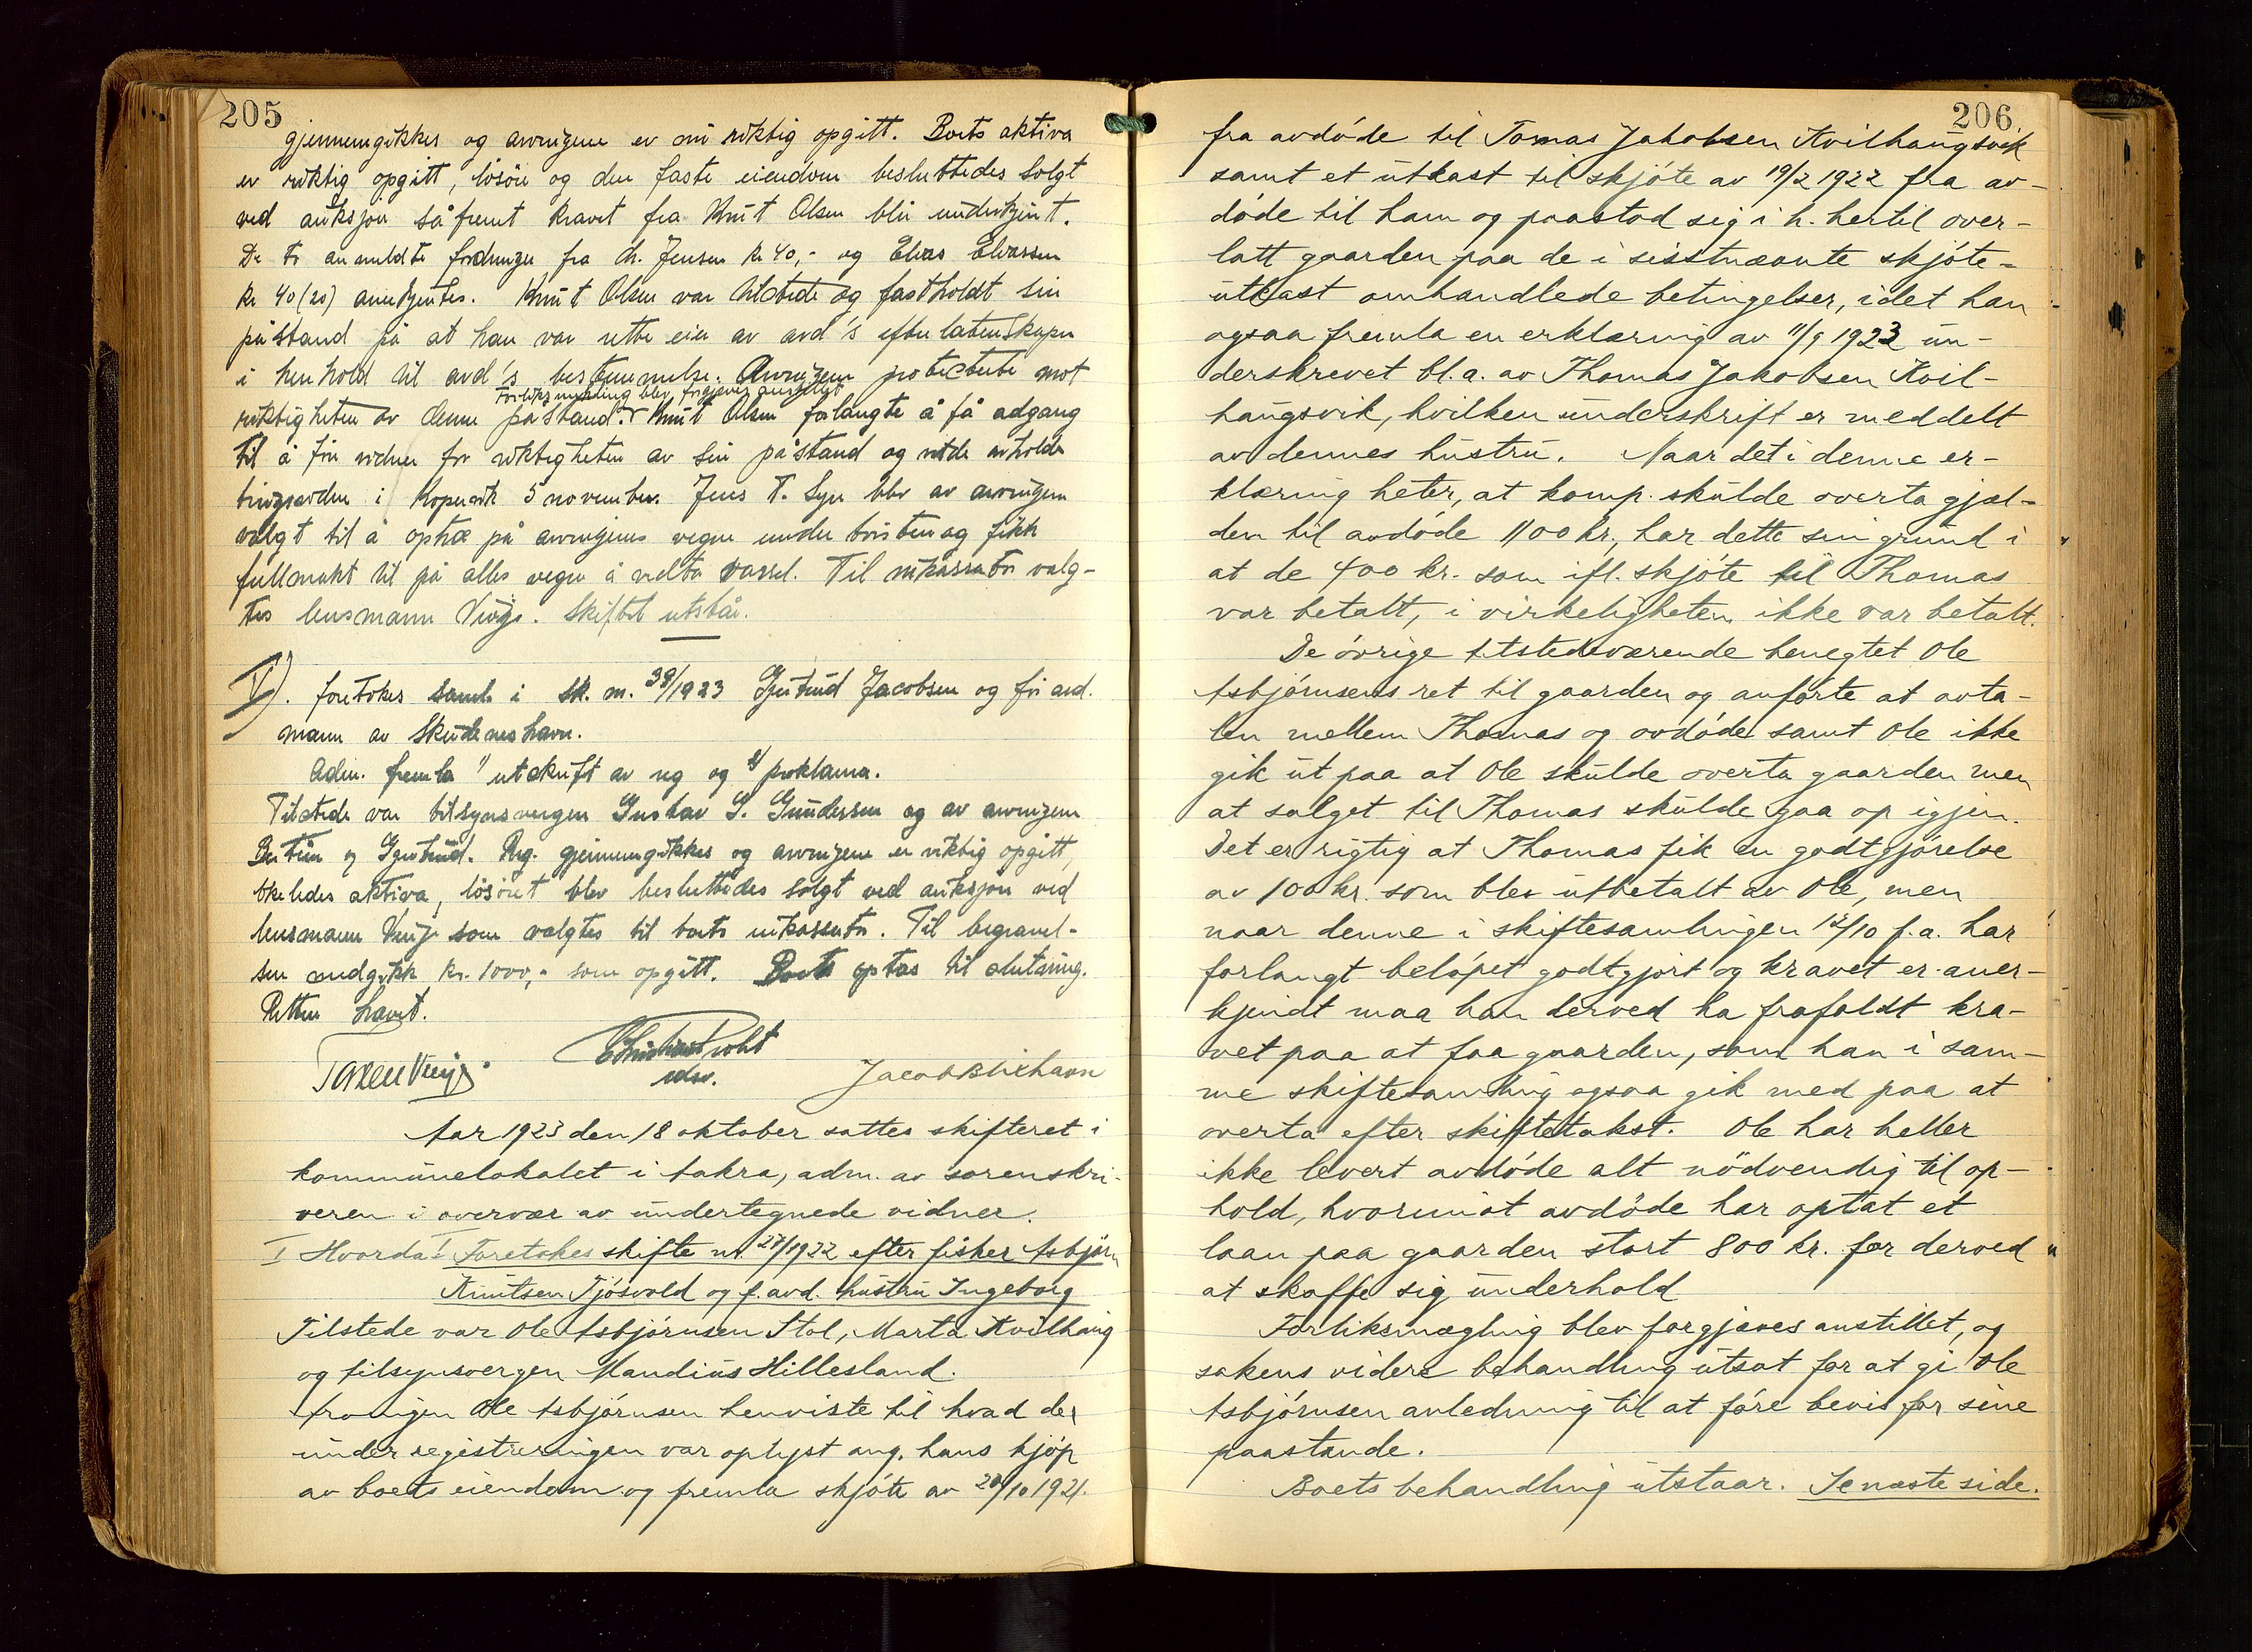 205
gjennemgikkes og arvingene er nu riktig opgitt. Boets aktiva
er riktig opgitt, løsøre og den faste eiendom besluttedes solgt
ved auksjon såfremt kravet fra Knut Olsen blir underkjent.
De to anmeldte fordringer fra Jensen kr 40,- og Elias Eliassen
kr 40 (20) anerkjentes. Knut Olsen var tilstede og fastholdt sin
påstand på at han var rette eier av avd's efterlatenskaper
i henhold til avd's bestemmelse. Arvingene protesterte mot
Forliksmekling blev forgjæves anstillet
riktigheten av denne påstand. Knut Olsen forlangte å få adgang
til å føre vidner for riktigheten av sin påstand og vilde avholde
i Kopervik 5 november. Jens T. Syre blev av arvingene
valgt til å optræ på arvingenes vegne under tvisten og fikk
fullmakt til på alles vegne å vedta varsel. Til inkassator valg-
tes lensmann Vinje. Skiftet utstår.
V). foretokes saml. i sk. nr. 38/1923 Gjertrud Jacobsen og før avd.
mann av Skudeneshavn.
Adm. fremla 1) utskrift av reg og 2) proklama.
Tilstede var tilsynsvergen Gustav S. Gundersen og av arvingene
Bertine og Gjertrud. Reg. gjennemgikkes og arvingene er riktig opgitt,
likeledes aktiva, løsøret blev besluttedes solgt ved auksjon ved
lensmann Vinje som valgtes til boets inkassator. Til begravel-
sen medgikk kr. 1000,- som opgitt. Boet optas til slutning.
Retten hævet.
Jacob Blikhavn
Aar 1923 den 18 oktober sattes skifteret i
kommunelokalet i Aakra, adm. av sorenskri-
veren i overvær av undertegnede vidner.
I Hvorda: Foretokes skifte nr 27/1922 efter fisker Asbjørn
Knutsen Tjøsvold og f. avd. hustru Ingeborg
Tilstede var Ole Asbjørnsen Stol, Marta Kvilhaug
og tilsynsvergen Mandius Hillesland.
Arvingen Ole Asbjørnsen henviste til hvad der
under registreringen var oplyst ang. hans kjøp
av boets eiendom og fremla skjøte av 20/10 1921.
206
fra avdøde til Tomas Jakobsen Kvilhaugsvik
samt et utkast til skjøte av 19/2 1922 fra av-
døde til ham og paastod sig i h. hertil over-
latt gaarden paa de i sisstnævnte skjøte-
utkast omhandlede betingelser, idet han
ogsaa fremla en erklæring av 11/9 1923 un-
derskrevet bl. a. av Thomas Jakobsen Kvil-
haugsvik, hvilken underskrift er meddelt
av dennes hustru. Naar det i denne er-
klæring heter, at komp. skulde overta gjæl-
den til avdøde 1100 kr., har dette sin grund i
at de 400 kr. som ifl. skjøte til Thomas
var betalt, i virkeligheten ikke var betalt.
De øvrige tilstedeværende benegtet Ole
Asbjørnsens ret til gaarden og anførte at avta-
len mellem Thomas og avdøde samt Ole ikke
gik ut paa at Ole skulde overta gaarden men
at salget til Thomas skulde gaa op igjen.
Det er rigtig at Thomas fik en godtgjørelse
av 100 kr. som blev utbetalt av Ole, men
naar denne i skiftesamlingen 12/10 f. a. har
forlangt beløpet godtgjort og kravet er aner-
kjendt maa han derved ha frafaldt kra-
vet paa at faa gaarden, som han i sam-
me skiftesamling ogsaa gik med paa at
overta efter skiftetakst. Ole har heller
ikke levert avdøde alt nødvendig til op-
hold, hvorimot avdøde har optat et
laan paa gaarden stort 800 kr. for derved
at skaffe sig underhold
Forliksmægling blev forgjæves anstillet, og
sakens videre behandling utsat for at gi Ole
Asbjørnsen anledning til at føre bevis for sine
paastande.
Boets behandling utstaar. Se næste side.